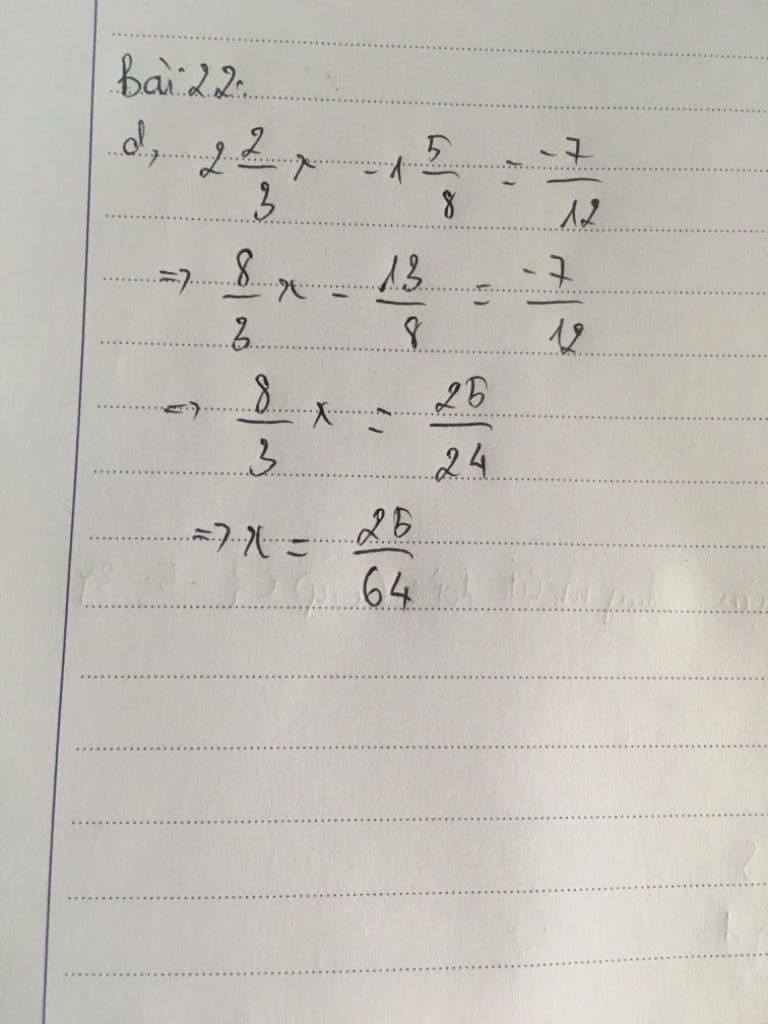 Bài 22:
d, 2 2/3 x - 1 5/8 = -7/12
=> 8/3 x - 13/8 = -7/12
=> 8/3 x = 25/24
=> x = 25/64